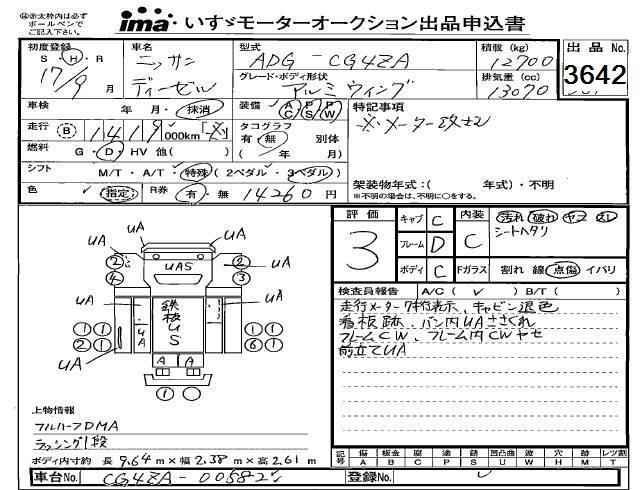 ㊟赤太枠内は必ず
ボールペンで
ご記入下さい。
ima いすゞモーターオークション出品申込書
初度登録 車名 型式 積載 (kg) 出品 No.
S・H・R ニッサン ADG-CG4ZA 12700
17/9 月 ディーゼル グレード・ボディ形状 排気量 (cc) 3642
アルミウィング 13070
車検 年 月・抹消 装備 AC PS PW 特記事項
走行 B 1419 000km タコグラフ ※メーター改ザン
有・無 別体
燃料 G・D・HV 他( ) ( 年 月)
シフト M/T・A/T・特殊 (2ペダル・3ペダル) 架装物年式:( 年式)・不明
※不明の場合は、不明に○をする。
色 指定 R券 有・無 14260 円
評価 3
キャブ C 内装 C 汚れ 破れ ヤブ スレ
シートヘタリ
フレーム D
ボディ C Fガラス 割れ 線 点傷 イバリ
検査員報告 A/C( ✓ ) B/T( )
走行メーター7桁表示、キャビン退色
看板跡、バン内UAささくれ
フレームCW、フレーム内CWヤセ
前立てUA
UA UA
UA UAS UA
② ②
④ ③
UA UA
鉄板 U S
U A
① ① ① ①
② ① ⑥ ①
UA UA
A A
① ○
上物情報
フルハーフDMA
ラッシング1段
ボディ内寸約 長 9.64 m × 幅 2.38 m × 高 2.61 m
記号 傷 板金 腐 塗 錆 凹凸曲 波 穴 跡 レツ割
A B C P S U W H M T
車台No. CG4ZA-00582
登録No.